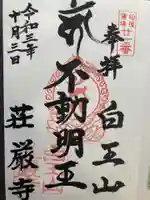 奉拝
白王山
不動明王
荘厳寺
令和三年
十月三日